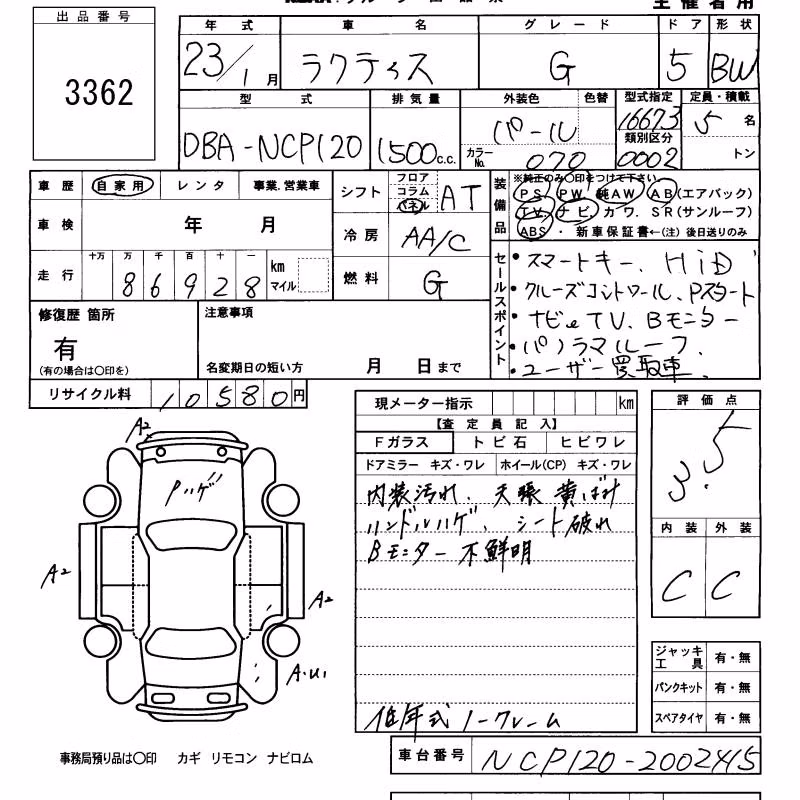 出品番号
3362
年式 車名 グレード ドア 形状
23/1月 ラクティス G 5 BW
型式 排気量 外装色 色替 型式指定 定員・積載
DBA-NCP120 1500c.c. パール 16673 5名
カラーNo. 070 類別区分 0002 トン
車歴 自家用 レンタ 事業.営業車
シフト フロア コラム パネル AT
車検 年 月
冷房 AA/C
走行 十万 万 千 百 十 一 km マイル
86928
燃料 G
装備品
※純正のみ〇印をつけて下さい
PS PW 純AW AB(エアバック)
TV ナビ カワ. SR(サンルーフ)
ABS ・ 新車保証書←(注) 後日送りのみ
セールスポイント
・スマートキー. HiD
・クルーズコントロール. Pスタート
・ナビeTV. Bモニター
・パノラマルーフ.
・ユーザー買取車.
修復歴 箇所
有
(有の場合は〇印を)
注意事項
名変期日の短い方 月 日まで
リサイクル料 10580円
A2
Pハゲ
A2
A2
A・U1
現メーター指示 km
【査定員記入】
Fガラス トビ石 ヒビワレ
ドアミラー キズ・ワレ ホイール(CP) キズ・ワレ
内装汚れ、天張黄ばみ
ハンドルハゲ、シート破れ
Bモニター不鮮明
低年式ノークレーム
評価点
3.5
内装 外装
C C
ジャッキ工具 有・無
パンクキット 有・無
スペアタイヤ 有・無
事務局預り品は〇印 カギ リモコン ナビロム
車台番号 NCP120-2002415